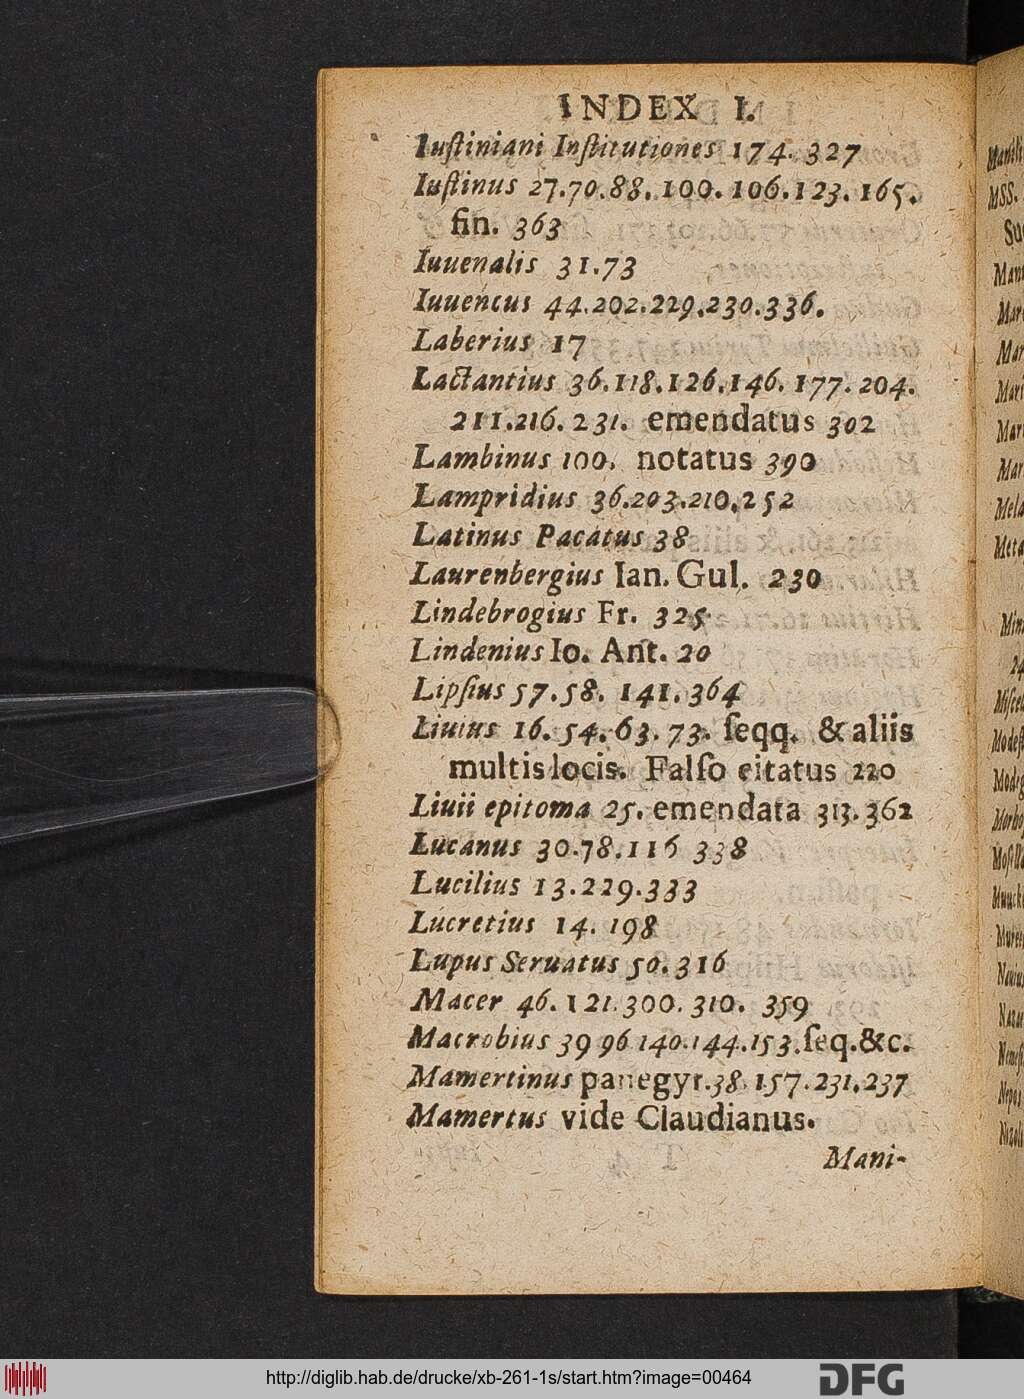 INDEX I.
Iuſtiniani Inſtitutiones 174. 327
Iuſtinus 27.70.88.100.106.123.165.
fin. 363
Iuuenalis 31.73
Iuuencus 44.202.229.230.336.
Laberius 17
Lactantius 36.118.126.146.177.204.
211.216.231. emendatus 302
Lambinus 100. notatus 390
Lampridius 36.203.210.252
Latinus Pacatus 38
Laurenbergius Ian. Gul. 230
Lindebrogius Fr. 325
Lindenius Io. Ant. 20
Lipſius 57.58. 141.364
Liuius 16.54.63.73. ſeqq. & aliis
multis locis. Falſo citatus 220
Liuii epitoma 25. emendata 313.362
Lucanus 30.78.116 338
Lucilius 13.229.333
Lucretius 14. 198
Lupus Seruatus 50.316
Macer 46.121.300.310. 359
Macrobius 39 96 140.144.153.ſeq.&c.
Mamertinus panegyr.38 157.231.237
Mamertus vide Claudianus.
Mani-
http://diglib.hab.de/drucke/xb-261-1s/start.htm?image=00464
DFG